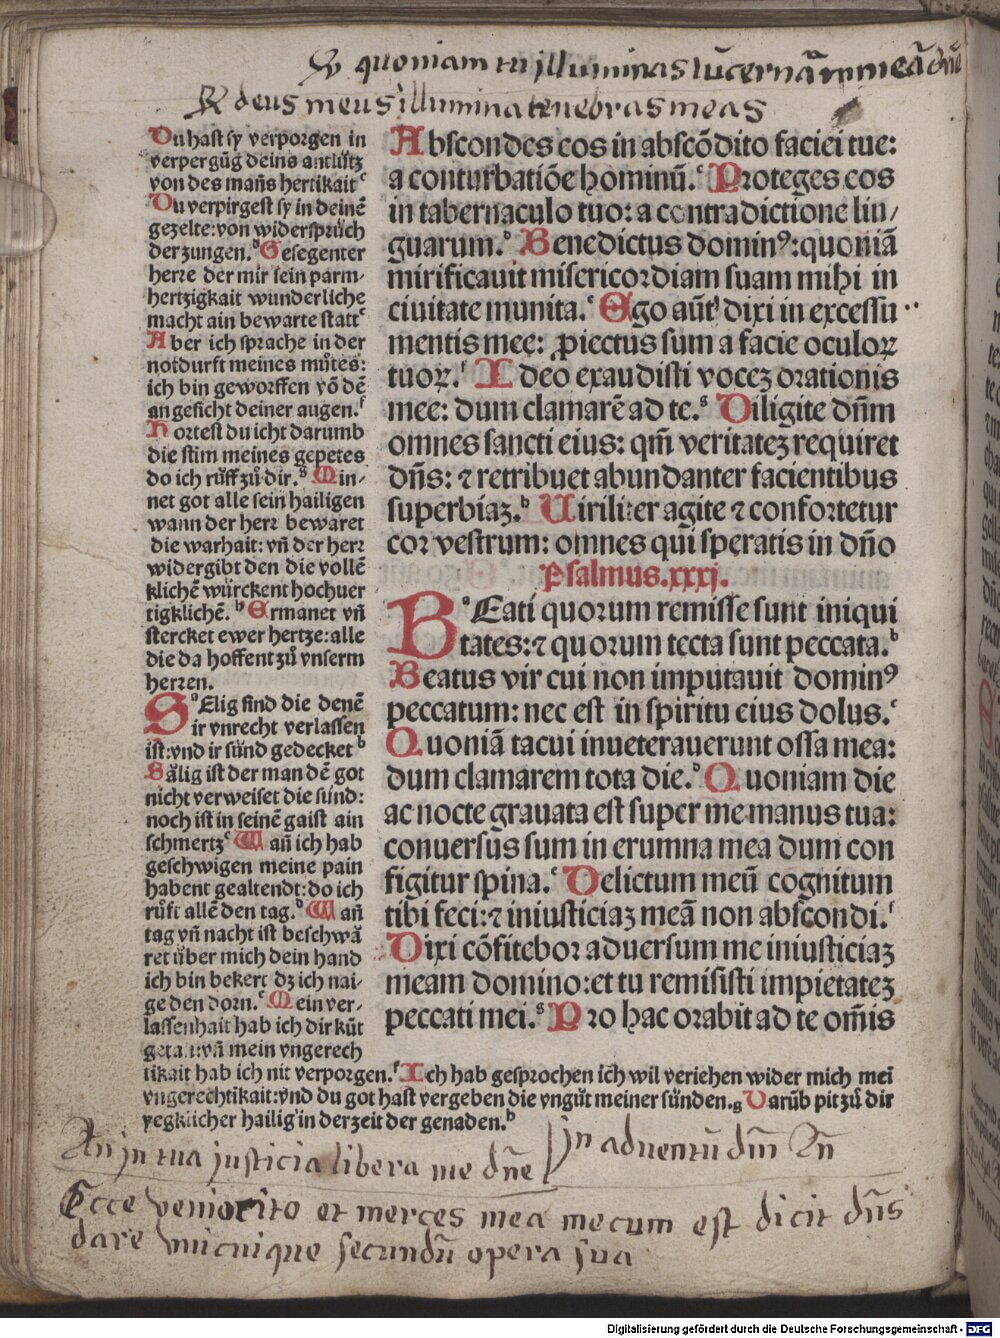 ℣ quoniam tu illuminas lucernā meā dn̄e
℟ deus meus illumina tenebras meas
Du hast sy verporgen in
verpergūg deins antlütz
von des man̄s hertikait ͨ
Du verpirgest sy in deinē
gezelte: von widersprüch
der zungen. ᵈ Gesegenter
herre der mir sein parm⸗
hertzigkait wunderliche
macht ain bewarte statt ͤ
Aber ich sprache in der
notdurft meines můtes:
ich bin geworffen vō dē
an gesicht deiner augen. ᶠ
Hortest du icht darumb
die stim meines gepetes
do ich růff zů dir. ᵍ Min⸗
net got alle sein hailigen
wann der herr bewaret
die warhait: vn̄ der herr
widergibt den die vollē
klichē würckent hochuer
tigklichē. ʰ Ermanet vn̄
stercket ewer hertze: alle
die da hoffent zů vnserm
herren.
Sᵃ Elig sind die denē
ir vnrecht verlassen
ist: vnd ir sünd gedecket ᵇ
Sälig ist der man dē got
nicht verweiset die sünd:
noch ist in seinē gaist ain
schmertz ͨ Wan̄ ich hab
geschwigen meine pain
habent gealtendt: do ich
růft allē den tag. ᵈ Wan̄
tag vn̄ nacht ist beschwā
ret über mich dein hand
ich bin bekert dz ich nai⸗
ge den dorn. ͤ Mein ver⸗
lassenhait hab ich dir kūt
getan: vn̄ mein vngerech
tikait hab ich nit verporgen. ᶠ Ich hab gesprochen ich wil veriehen wider mich mei
vngerechtikait: vnd du got hast vergeben die vngüt meiner sünden. ᵍ Darūb pit zů dir
yegklicher hailig in der zeit der genaden. ʰ
Abscondes eos in abscōdito faciei tue:
a conturbatiōe hominū. ͨ Proteges eos
in tabernaculo tuo: a contradictione lin⸗
guarum. ᵈ Benedictus dominꝰ: quoniā
mirificauit misericordiam suam mihi in
ciuitate munita. ͤ Ego aūt dixi in excessu
mentis mee: ꝓiectus sum a facie oculoꝝ
tuoꝝ. ᶠ Ideo exaudisti vocez orationis
mee: dum clamarē ad te. ᵍ Diligite dn̄m
omnes sancti eius: qm̄ veritatez requiret
dn̄s: ⁊ retribuet abundanter facientibus
superbiaz. ʰ Uiriliter agite ⁊ confortetur
cor vestrum: omnes qui speratis in dn̄o
Psalmus.xxxj.
Bᵃ Eati quorum remisse sunt iniqui
tates: ⁊ quorum tecta sunt peccata. ᵇ
Beatus vir cui non imputauit dominꝰ
peccatum: nec est in spiritu eius dolus. ͨ
Quoniā tacui inueterauerunt ossa mea:
dum clamarem tota die. ᵈ Quoniam die
ac nocte grauata est super me manus tua:
conuersus sum in erumna mea dum con
figitur spina. ͤ Delictum meū cognitum
tibi feci: ⁊ iniusticiaz meā non abscondi. ᶠ
Dixi cōfitebor aduersum me iniusticiaz
meam domino: et tu remisisti impietatez
peccati mei. ᵍ Pro hac orabit ad te om̄is
An̄ jn tua justicia libera me dn̄e
Jn aduentū dn̄i An̄
Ecce venio cito et merces mea mecum est dicit dn̄s
dare vnicuique secundū opera sua
Digitalisierung gefördert durch die Deutsche Forschungsgemeinschaft - DFG